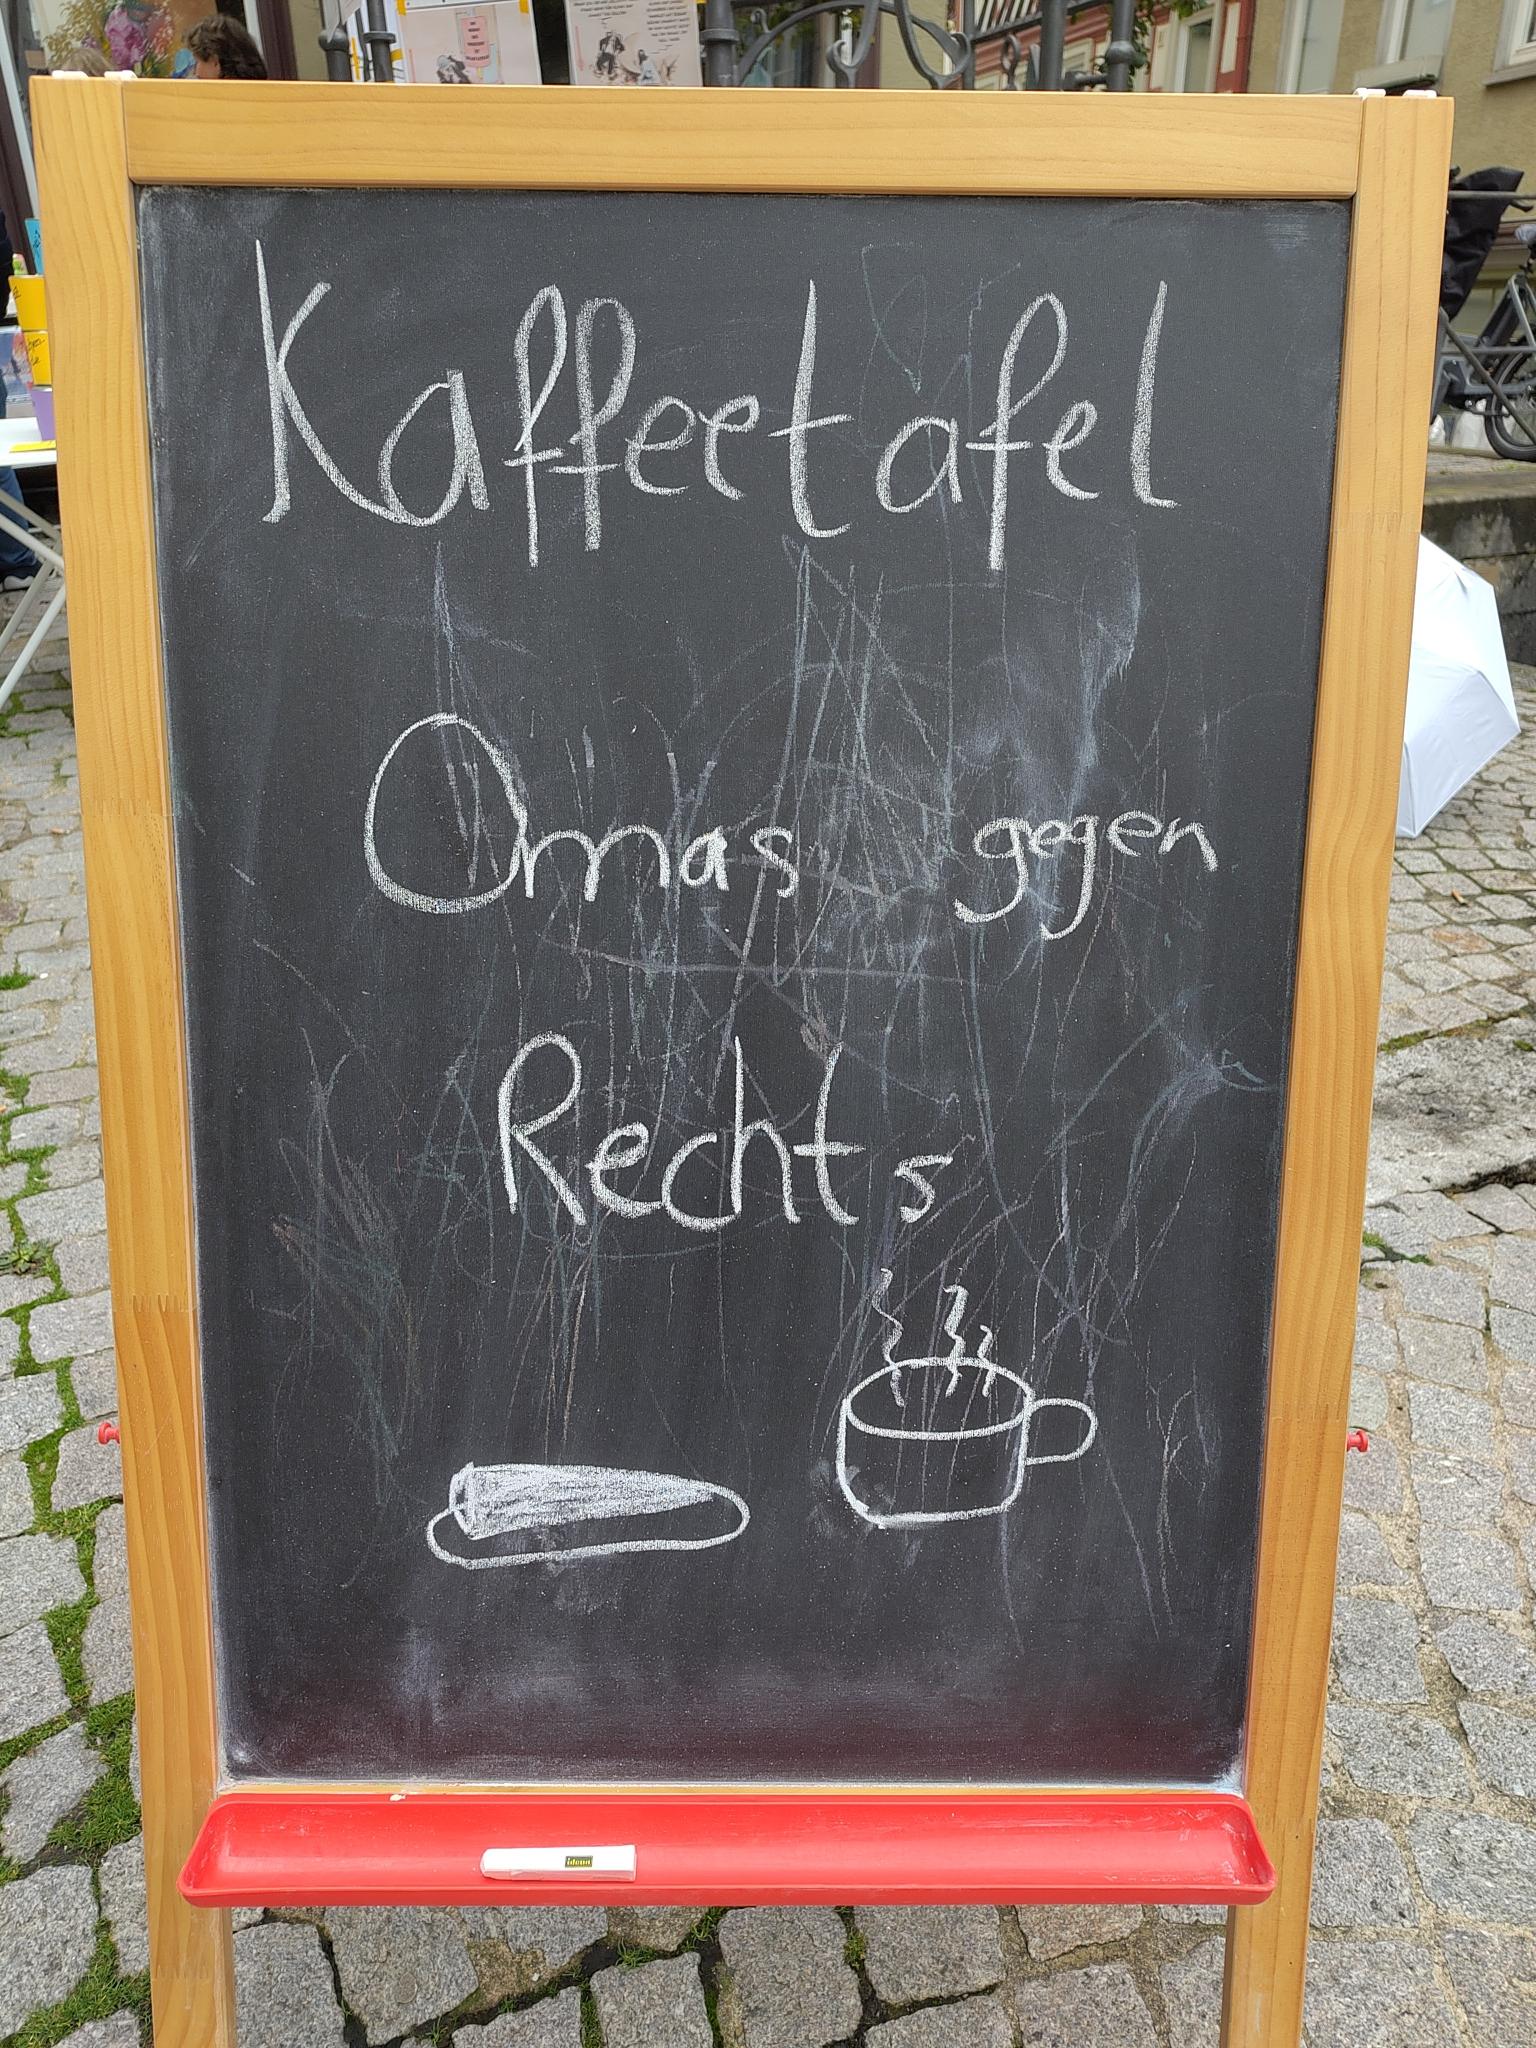 Kaffeetafel
Omas gegen
Rechts
idena